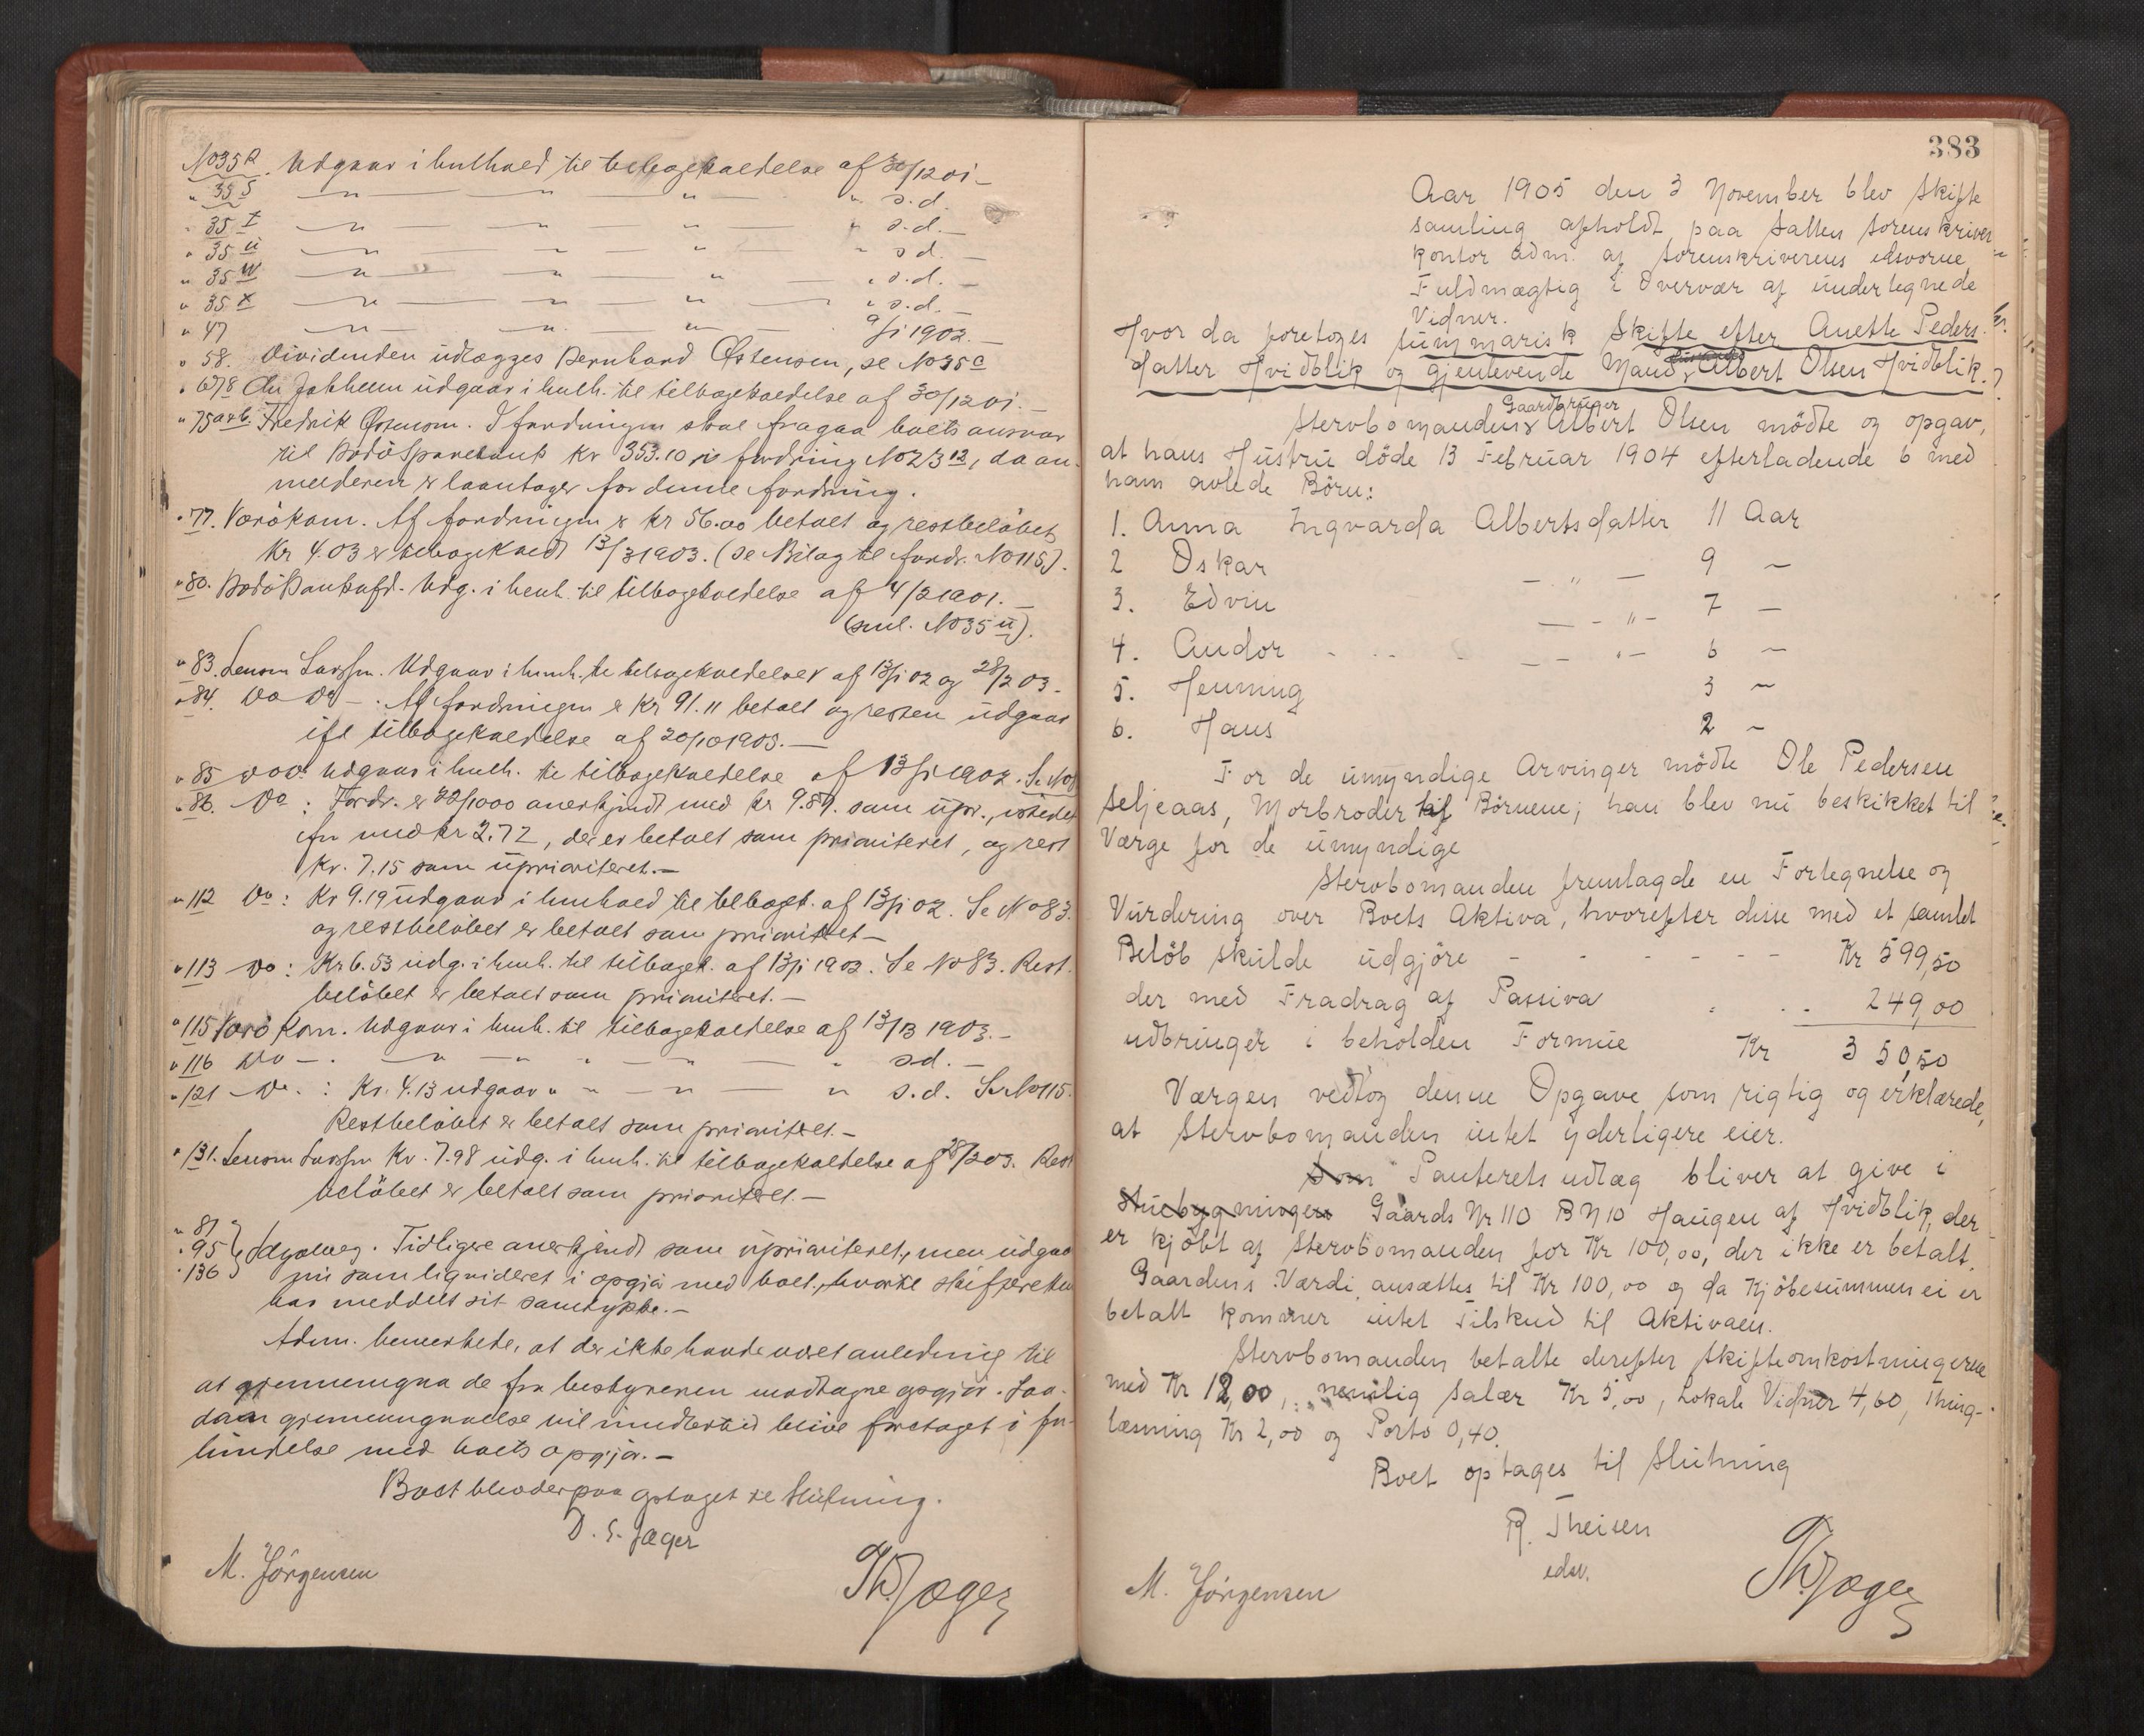 No 35 R. Udgaar i henhold til tilbagekaldelse af 30/12 01 —
" 35 S — " — " — " — " s.d.
" 35 T — " — " — " — " s.d. —
" 35 U — " — " — " — " s.d. —
" 35 W — " — " — " — " s.d. —
" 35 X — " — " — " — " s.d. —
" 47 — " — " — " — 9/1 1902. —
" 58. Dividenden udlægges Bernhard Østensen, se No 35 C
udgaar i henh. til tilbagekaldelse af 30/12 01. —
" 75 a&b. Fredrik Østensen. I fordringen skal fragaa boets ansvar
til Bodö Sparebank Kr 353.10 fordring No 23 12, da an-
melderen er laantager for denne fordring.
" 77. Værö kom. Af fordringen er Kr 56.00 betalt og restbelöbet
Kr 4.03 er tilbagekaldt 13/3 1903. (Se Bilag til fordr. No 115).
" 80. Bodö Bankafd. Udg. i henh. til tilbagekaldelse af 4/2 1901. —
(sml. No 35 U).
" 83. Larssen. Udgaar i henh. til tilbagekaldelser af 13/1 02 og 28/2 03 —
" 84. Do Do — : Af fordringen er Kr 91.11 betalt og resten udgaar
ifl tilbagekaldelse af 20/10 1903. —
" 85 Do Do. Udgaar i henh. til tilbagekaldelse af 13/1 1902. Se No 83
" 86. Do : Fordr. er anerkjendt med kr 9.87. som upr., istedet
for med kr 2.72, der er betalt som prioriteret, og rest
Kr. 7.15 som uprioriteret. —
" 112 Do : Kr 9.19 udgaar i henhold til tilbaget. af 13/1 02. Se No 83.
og restbelöbet er betalt som prioritet —
" 113 Do : Kr 6.53 udg. i henh. til tilbagek. af 13/1 1902. Se No 83. Rest-
belöbet er betalt som prioriteret. —
" 115 Værö Kom. Udgaar i henh. til tilbagekaldelse af 13/3 1903. —
" 116 Do — . — " — " — " — " s.d. —
" 121 Do. : Kr. 4.13 udgaar " — " — " — " s.d. Se No 115.
Restbelöbet er betalt som prioritet. —
" 131. Larssen Kr. 7.98 udg. i henh. til tilbagekaldelse af 28/2 03. Rest
belöbet er betalt som prioritet. —
" 87
" 95
" 136 Tidligere anerkjendt som uprioriteret, men udgaar
nu som liquideret i opgjör med boet, hvortil skifteretten
har meddelt sit samtykke. —
Adm. bemerkede, at der ikke havde været anledning til
at gjennemgaa de fra bestyreren modtagne opgjör. Saa-
dan gjennemgaaelse vil imidlertid blive foretaget i for-
bindelse med boets opgjör. —
Boet blev derpaa optaget til Slutning.
D. S. Jæger
M. Jörgensen
Th. Jæger
383
Aar 1905 den 3 November blev Skifte
samling afholdt paa Salten Sorenskriver
kontor adm. af Sorenskriverens edsvorne
Fuldmægtig i Overvær af undertegnede
Vidner.
Hvor da foretoges summarisk Skifte efter Anette Peders
datter Hvidblik og gjenlevende Mand, Albert Olsen Hvidblik.
Gaardbruger
Stervbomanden Albert Olsen mödte og opgav,
at hans Hustru döde 13 Februar 1904 efterladende 6 med
ham avlede Börn:
1. Anna Ingvarda Albertsdatter 11 Aar
2 Oskar — " — 9 —
3. Edvin — " — 7 —
4. Andor — " — 6 —
5. Henning 3 —
6. Hans 2 —
For de umyndige Arvinger mödte Ole Pedersen
Seljeaas, Morbroder til Börnene; han blev nu beskikket til
Værge for de umyndige
Stervbomanden fremlagde en Fortegnelse og
Vurdering over Boets Aktiva, hvorefter disse med et samlet
Belöb skulde udgjöre - - - - - Kr 599,50
der med Fradrag af Passiva . . . 249,00
udbringer i beholden Formue Kr 350,50
Værgen vedtog denne Opgave som rigtig og erklærede,
at Stervbomanden intet yderligere eier.
Som Panterets udlæg bliver at give i
Stuebygningen Gaards Nr 110 B N 10 Haugen af Hvidblik, der
er kjöbt af Stervbomanden for Kr 100,00, der ikke er betalt.
Gaardens Værdi ansættes til Kr 100,00 og da Kjöbesummen ei er
betalt kommer intet Tilskud til Aktivaen.
Stervbomanden betalte derefter Skifteomkostningerne
med Kr 12,00, nemlig Salær Kr 5,00, Lokale Vidner 4,60, Thing-
læsning Kr 2,00 og Porto 0,40.
Boet optages til Slutning
R. Theisen
edsv.
M. Jörgensen
Th. Jæger